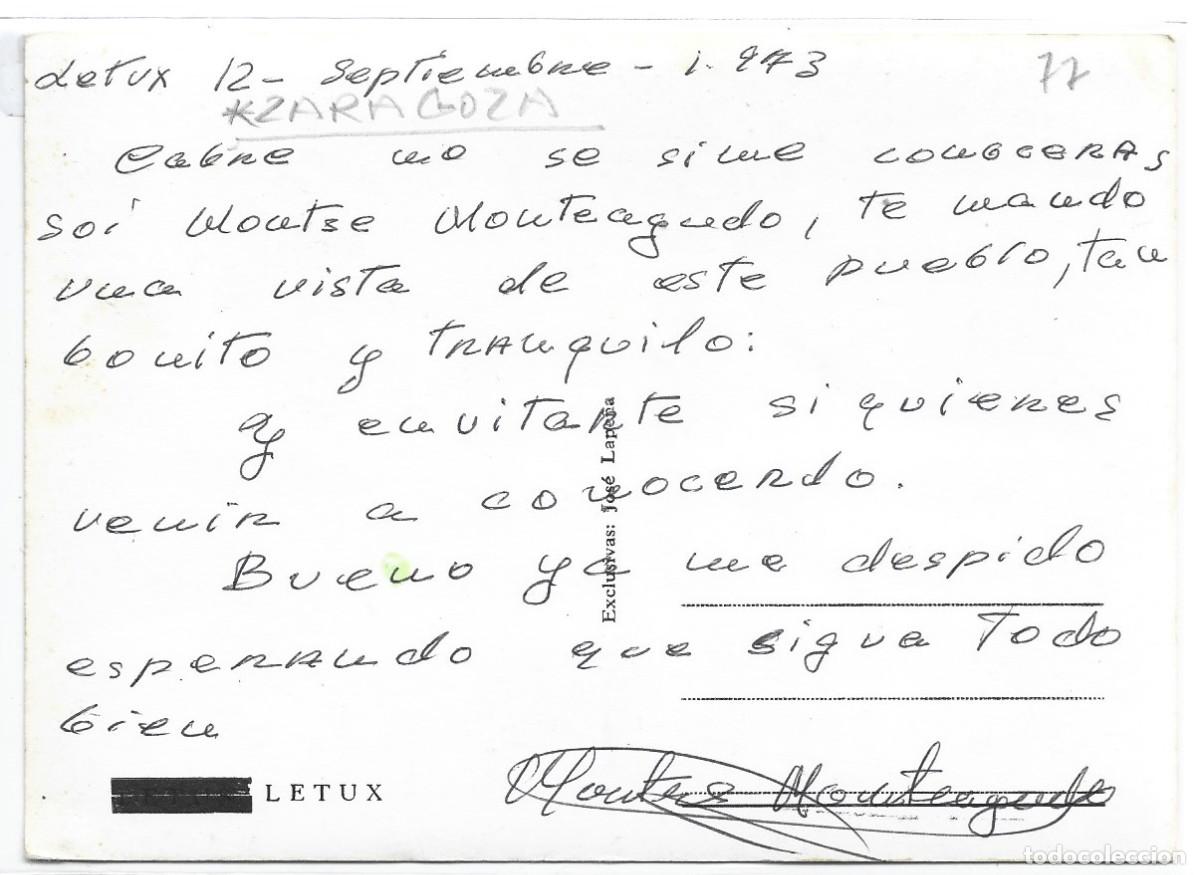 Letux 12- Septiembre - 1.973
77
*ZARAGOZA
Cabre no se si me conoceras,
soi Montse Monteagudo, te mando
una vista de este pueblo, tan
bonito y tranquilo:
y envitarte si quieres
venir a conocerdo.
Bueno ya me despido
esperando que sigua Todo
bien
Exclusivas: José Lapeña
LETUX
Montse Monteagudo
todocoleccion